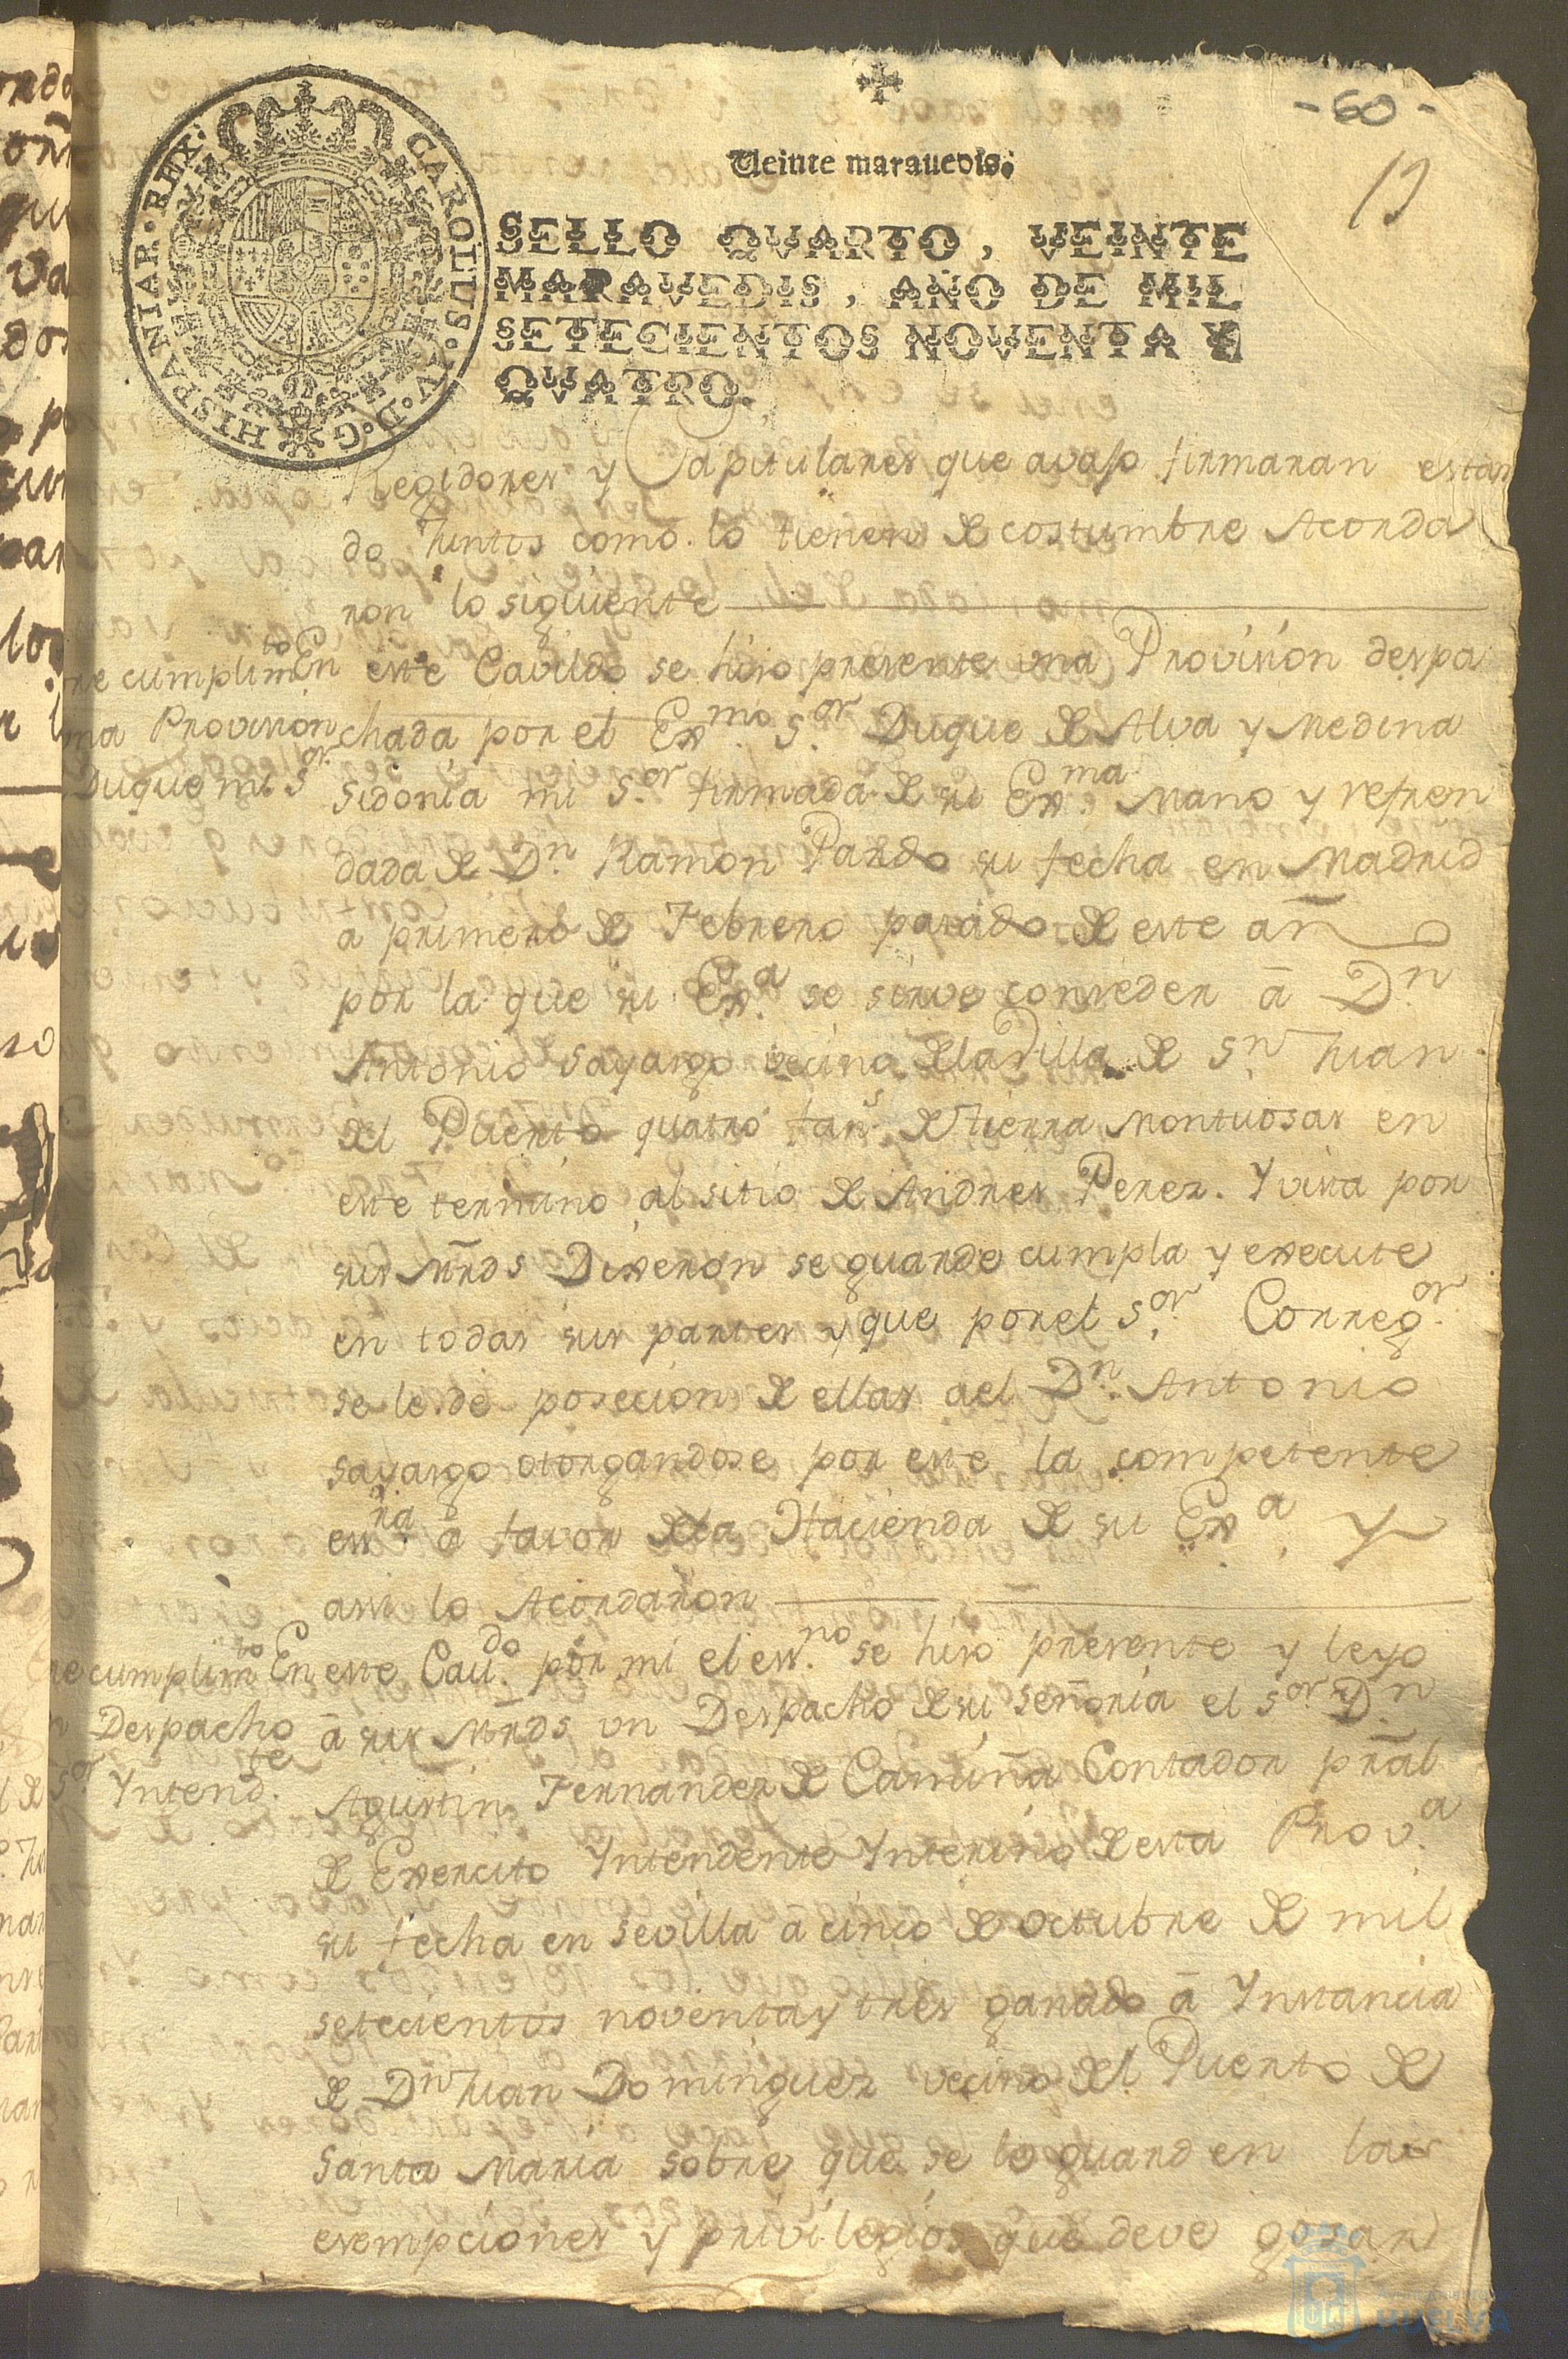 - 60 -
Veinte maravedis.
HISPANIAR·REX· CAROLUS·IV·D·G·
SELLO QVARTO, VEINTE
MARAVEDIS, AÑO DE MIL
SETECIENTOS NOVENTA Y
QVATRO.
Regidores y Capitulares que avajo firmaran estan
do Juntos como lo tienen de costumbre Acorda
ron lo siguiente
cumplim.to
una Provision
Duque mi S.or
En este Cavildo se hiso presente una Provision despa
chada por el Exmo S.or Duque de Alva y Medina
sidonia mi S.or firmada de su Ex.ma Mano y refren
dada de D.n Ramon Pardo su fecha en Madrid
a primero de Febrero pasado de este añ
por la que su Ex.a se sirve conseder á D.n
Antonio Sayargo vecino de la Villa de S.n Juan
del Puerto quatro fan.s de tierra Montuosas en
este termino al sitio de Andres Peres. Y vista por
sus Mrds Dixeron se guarde cumpla y execute
en todas sus partes y que por el S.or Correg.or
se le de posecion de ellas a el D.n Antonio
Sayargo otorgandose por este la competente
ess.ra a favor de la Hacienda de su Ex.a Y
assi lo Acordaron
cumplim.to
Despacho
S.or Yntend.te
En este Cav.do por mi el ess.no se hiso presente y leyo
á sus Mrds un Despacho de su señoria el s.or D.n
Agustin Fernandes de Camiña Contador pral
de Exercito Yntendente Ynterino de esta Prov.a
su fecha en Sevilla a cinco de Octubre de mil
setecientos noventa y tres ganado á Ynstancia
de D.n Juan Dominguez vecino del Puerto de
Santa Maria sobre que se le guarden las
exempciones y privilegios que deve gosar
HUELVA